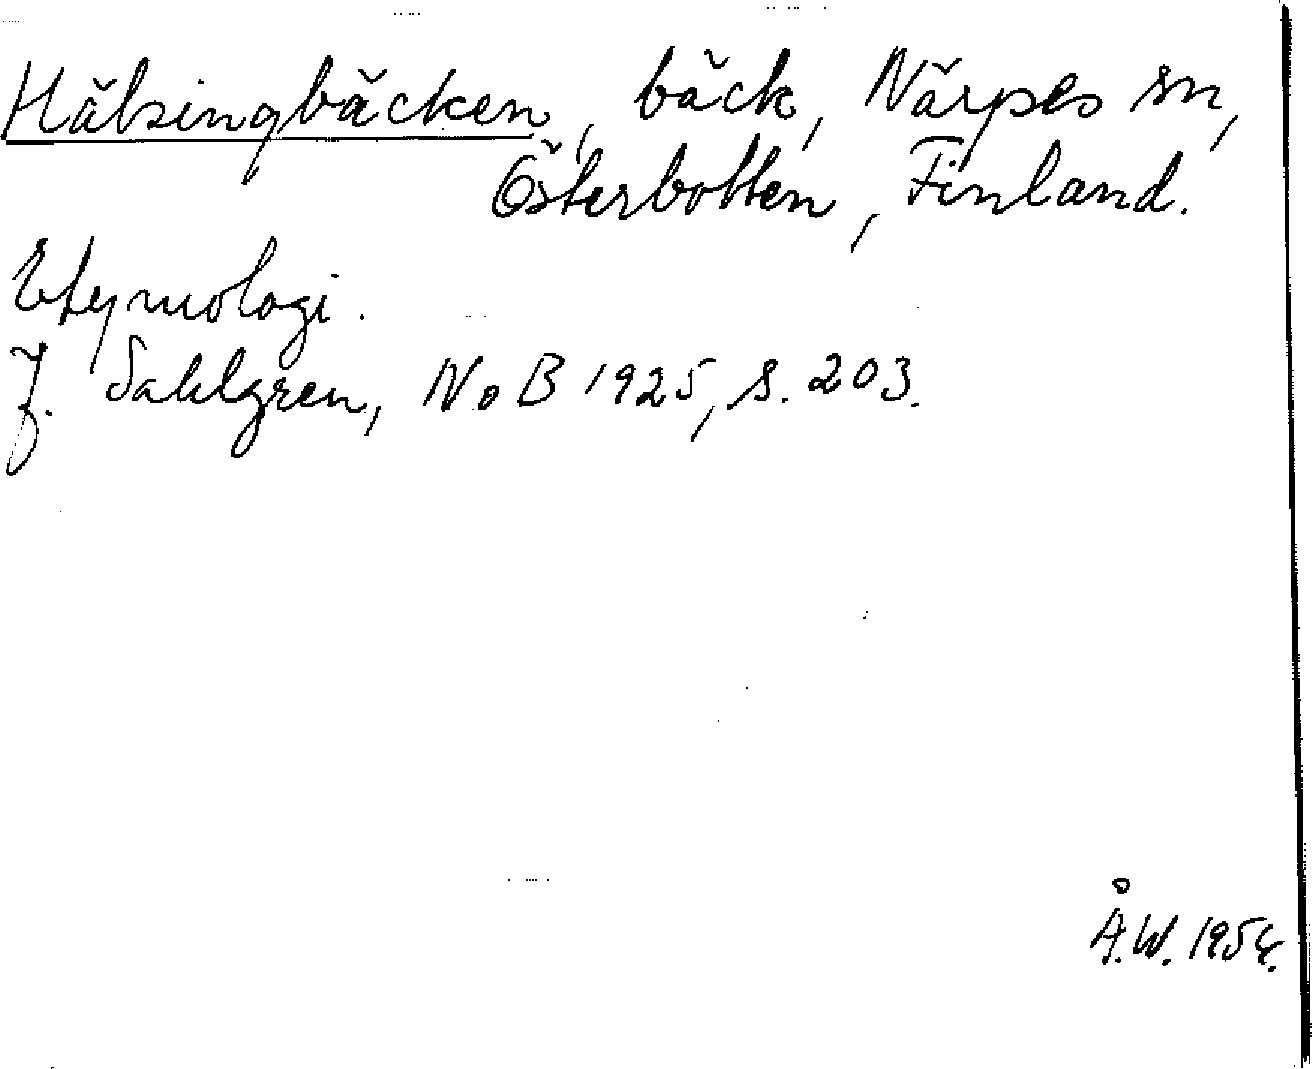 Hälsingbäcken, bäck, Närpes sn,
Österbotten, Finland.
Etymologi.
J. Sahlgren, NoB 1925, s. 203.
Å.W. 1954.